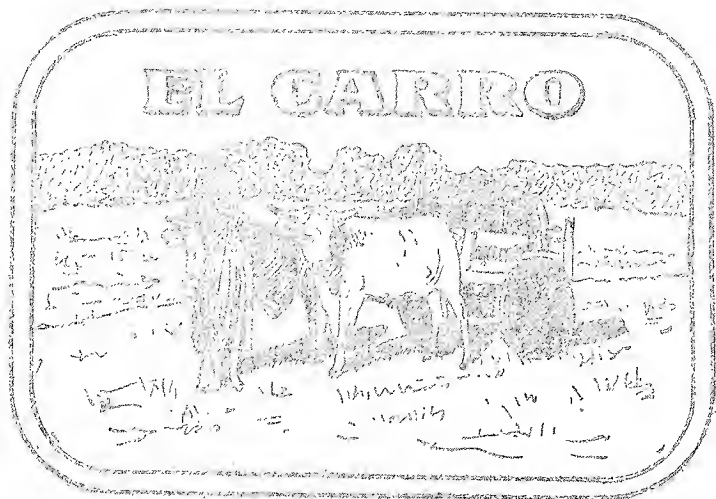 EL CARRO